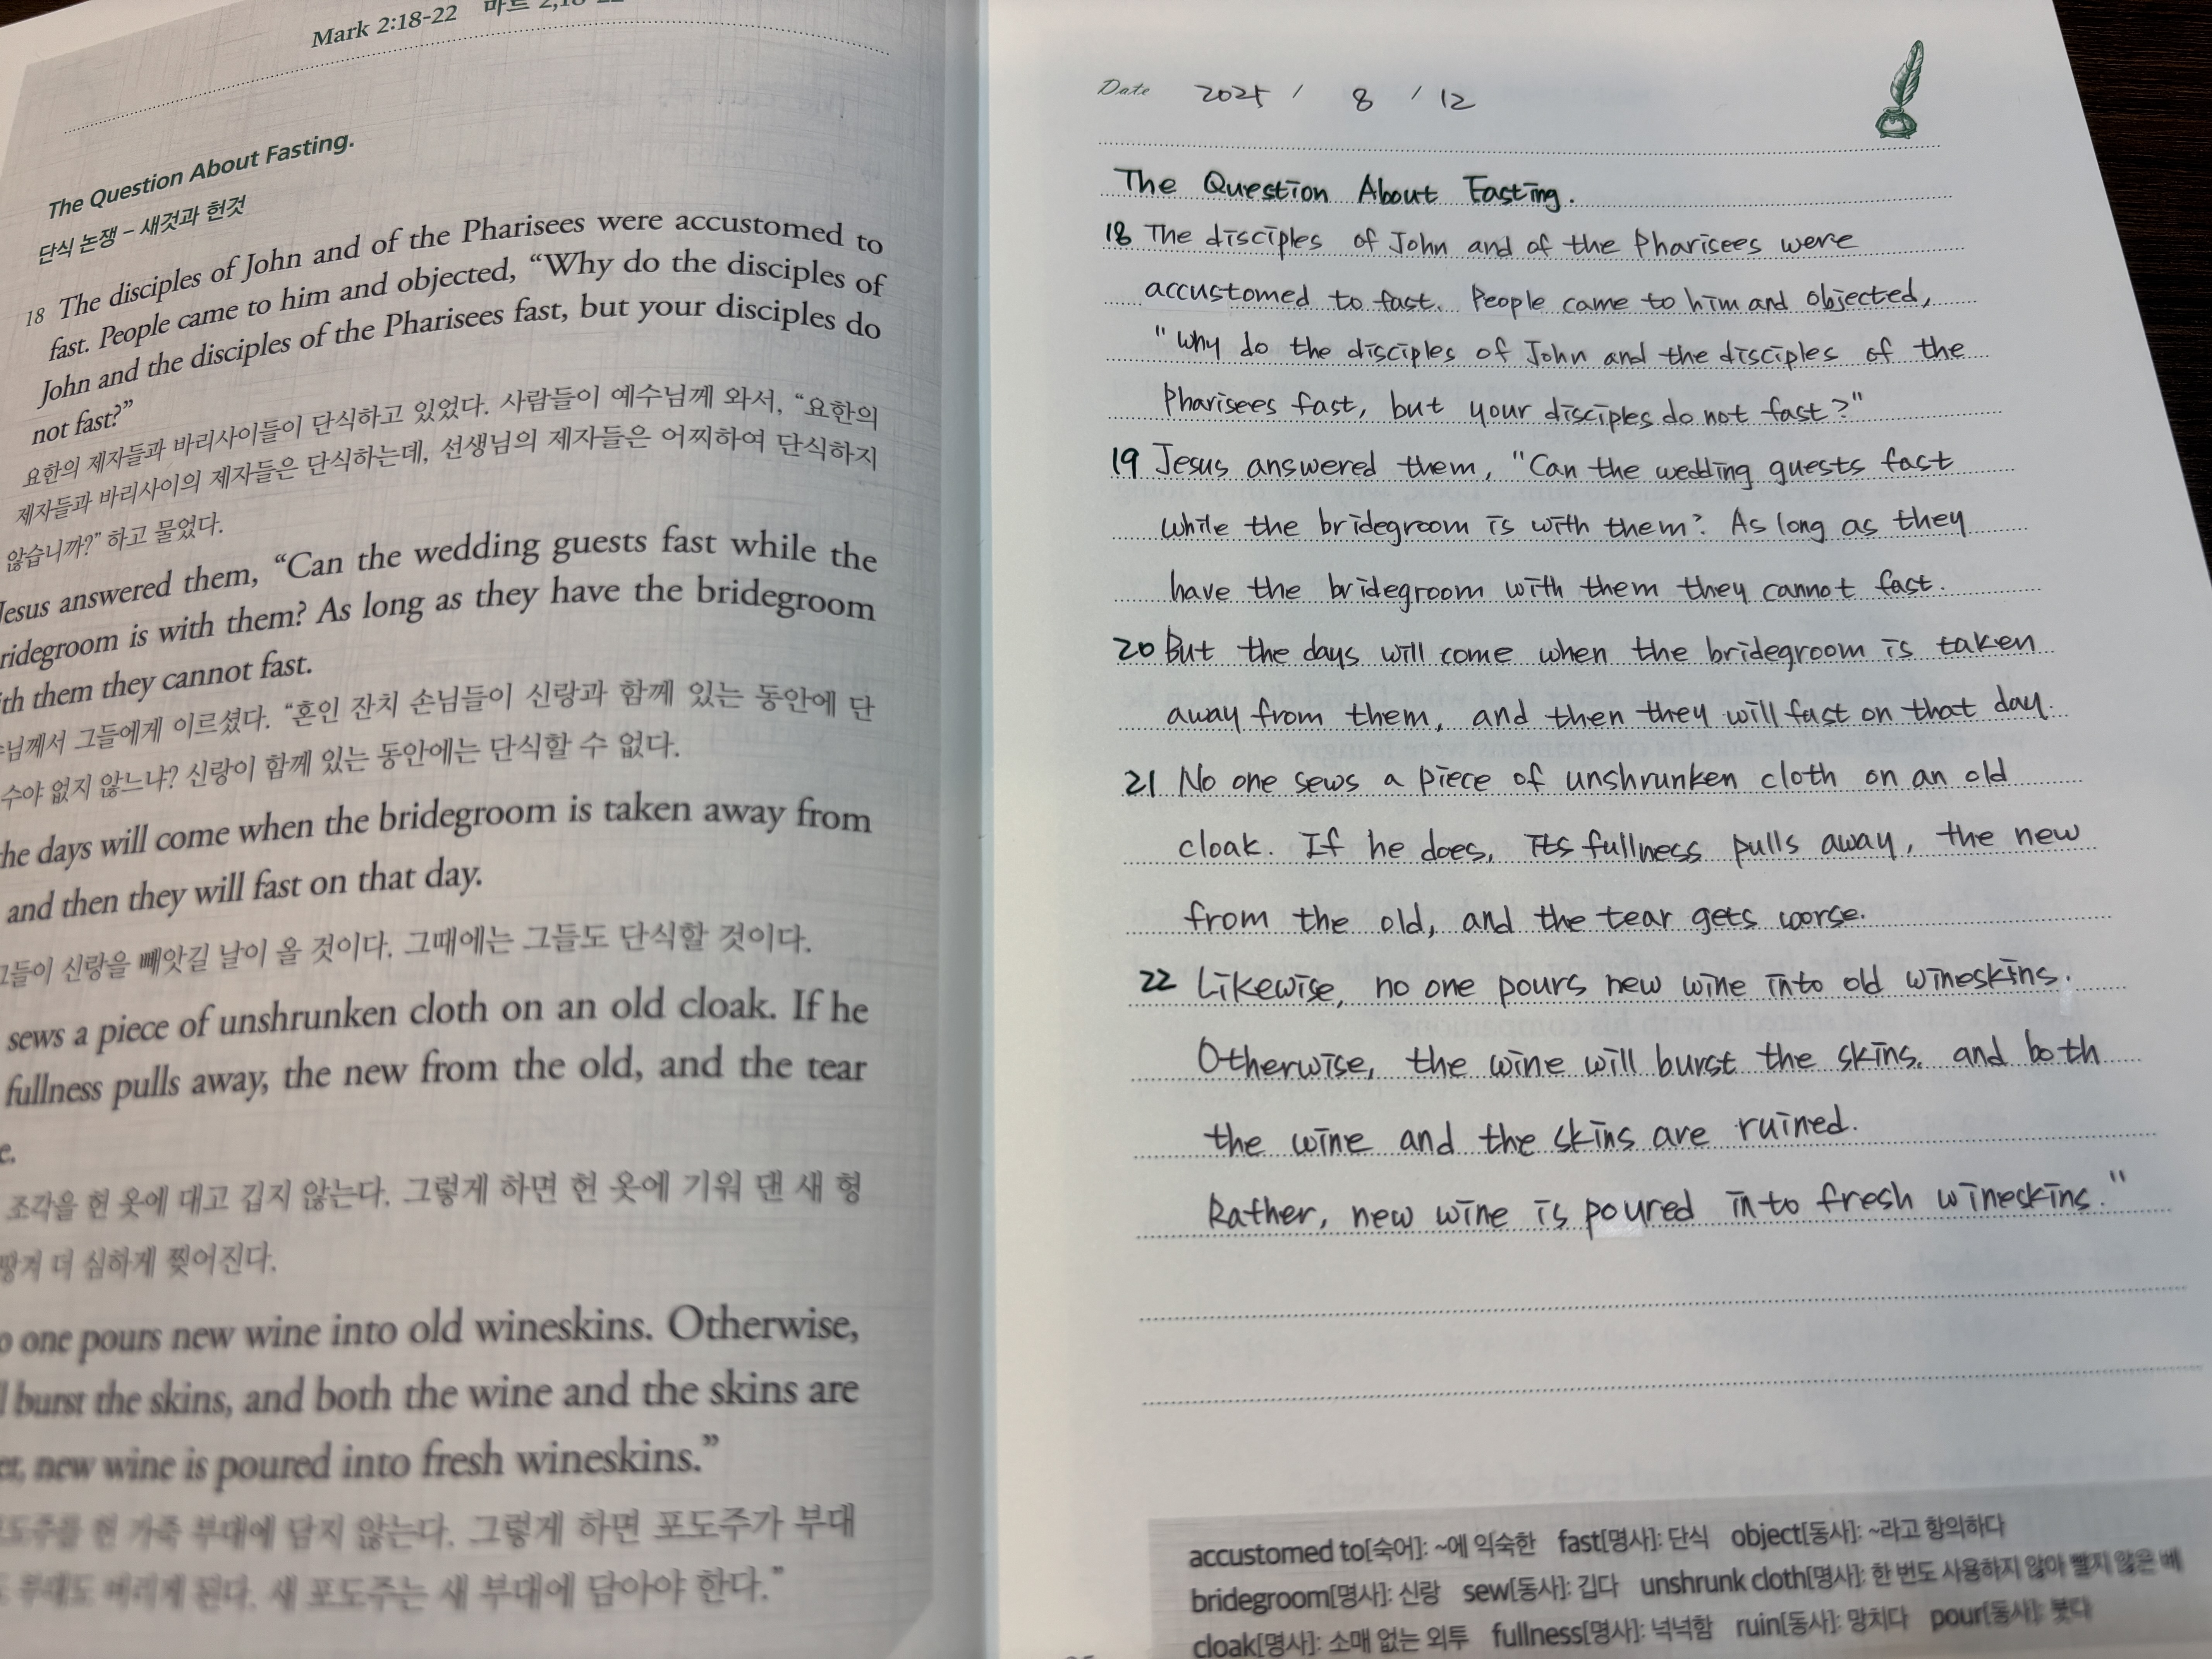 Mark 2:18-22 마르 2,18-22
The Question About Fasting.
단식 논쟁 – 새것과 헌것
18 The disciples of John and of the Pharisees were accustomed to
fast. People came to him and objected, “Why do the disciples of
John and the disciples of the Pharisees fast, but your disciples do
not fast?”
요한의 제자들과 바리사이들이 단식하고 있었다. 사람들이 예수님께 와서, “요한의
제자들과 바리사이의 제자들은 단식하는데, 선생님의 제자들은 어찌하여 단식하지
않습니까?” 하고 물었다.
Jesus answered them, “Can the wedding guests fast while the
ridegroom is with them? As long as they have the bridegroom
ith them they cannot fast.
님께서 그들에게 이르셨다. “혼인 잔치 손님들이 신랑과 함께 있는 동안에 단
수야 없지 않느냐? 신랑이 함께 있는 동안에는 단식할 수 없다.
he days will come when the bridegroom is taken away from
and then they will fast on that day.
그들이 신랑을 빼앗길 날이 올 것이다. 그때에는 그들도 단식할 것이다.
sews a piece of unshrunken cloth on an old cloak. If he
fullness pulls away, the new from the old, and the tear
e.
조각을 헌 옷에 대고 깁지 않는다. 그렇게 하면 헌 옷에 기워 댄 새 헝
땅겨 더 심하게 찢어진다.
o one pours new wine into old wineskins. Otherwise,
l burst the skins, and both the wine and the skins are
er, new wine is poured into fresh wineskins.”
포도주를 헌 가죽 부대에 담지 않는다. 그렇게 하면 포도주가 부대
부대도 버리게 된다. 새 포도주는 새 부대에 담아야 한다.”
Date 2025 / 8 / 12
The Question About Fasting.
18 The disciples of John and of the Pharisees were
accustomed to fast. People came to him and objected,
"Why do the disciples of John and the disciples of the
Pharisees fast, but your disciples do not fast?"
19 Jesus answered them, "Can the wedding guests fast
while the bridegroom is with them? As long as they
have the bridegroom with them they cannot fast.
20 But the days will come when the bridegroom is taken
away from them, and then they will fast on that day.
21 No one sews a piece of unshrunken cloth on an old
cloak. If he does, its fullness pulls away, the new
from the old, and the tear gets worse.
22 Likewise, no one pours new wine into old wineskins.
Otherwise, the wine will burst the skins, and both
the wine and the skins are ruined.
Rather, new wine is poured into fresh wineskins."
accustomed to[숙어]: ~에 익숙한 fast[명사]: 단식 object[동사]: ~라고 항의하다
bridegroom[명사]: 신랑 sew[동사]: 깁다 unshrunk cloth[명사]: 한 번도 사용하지 않아 빨지 않은 베
cloak[명사]: 소매 없는 외투 fullness[명사]: 넉넉함 ruin[동사]: 망치다 pour[동사]: 붓다